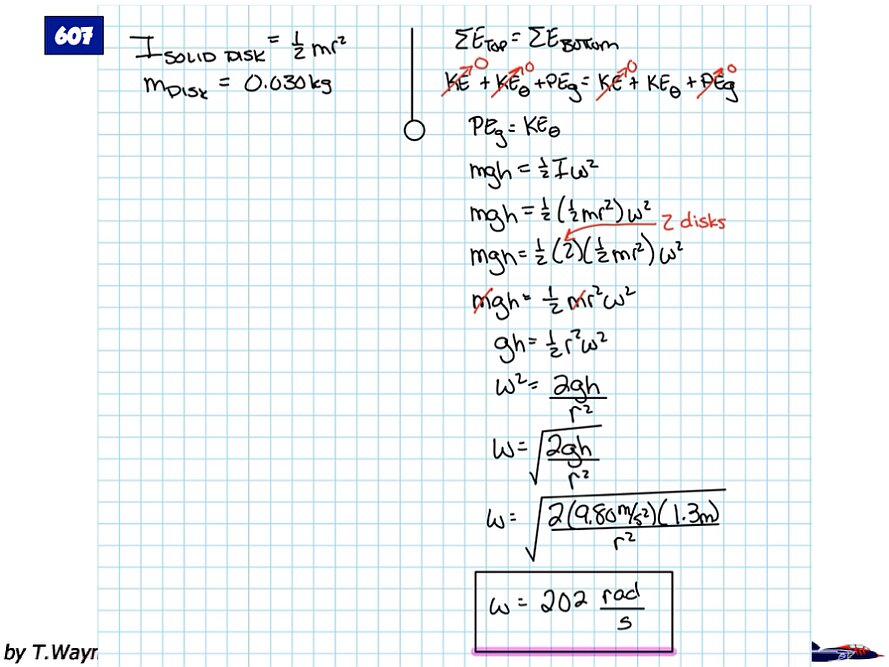 607
I SOLID DISK = 1/2 mr²
m DISK = 0.030 kg
ΣE TOP = ΣE BOTTOM
KE→0 + KEθ→0 + PEg = KE→0 + KEθ + PEg→0
PEg = KEθ
mgh = 1/2 Iω²
mgh = 1/2 (1/2 mr²) ω²
2 disks
mgh = 1/2 (2)(1/2 mr²) ω²
mgh = 1/2 mr²ω²
gh = 1/2 r²ω²
ω² = 2gh / r²
ω = √(2gh / r²)
ω = √(2(9.80 m/s²)(1.3m) / r²)
ω = 202 rad/s
by T.Wayn